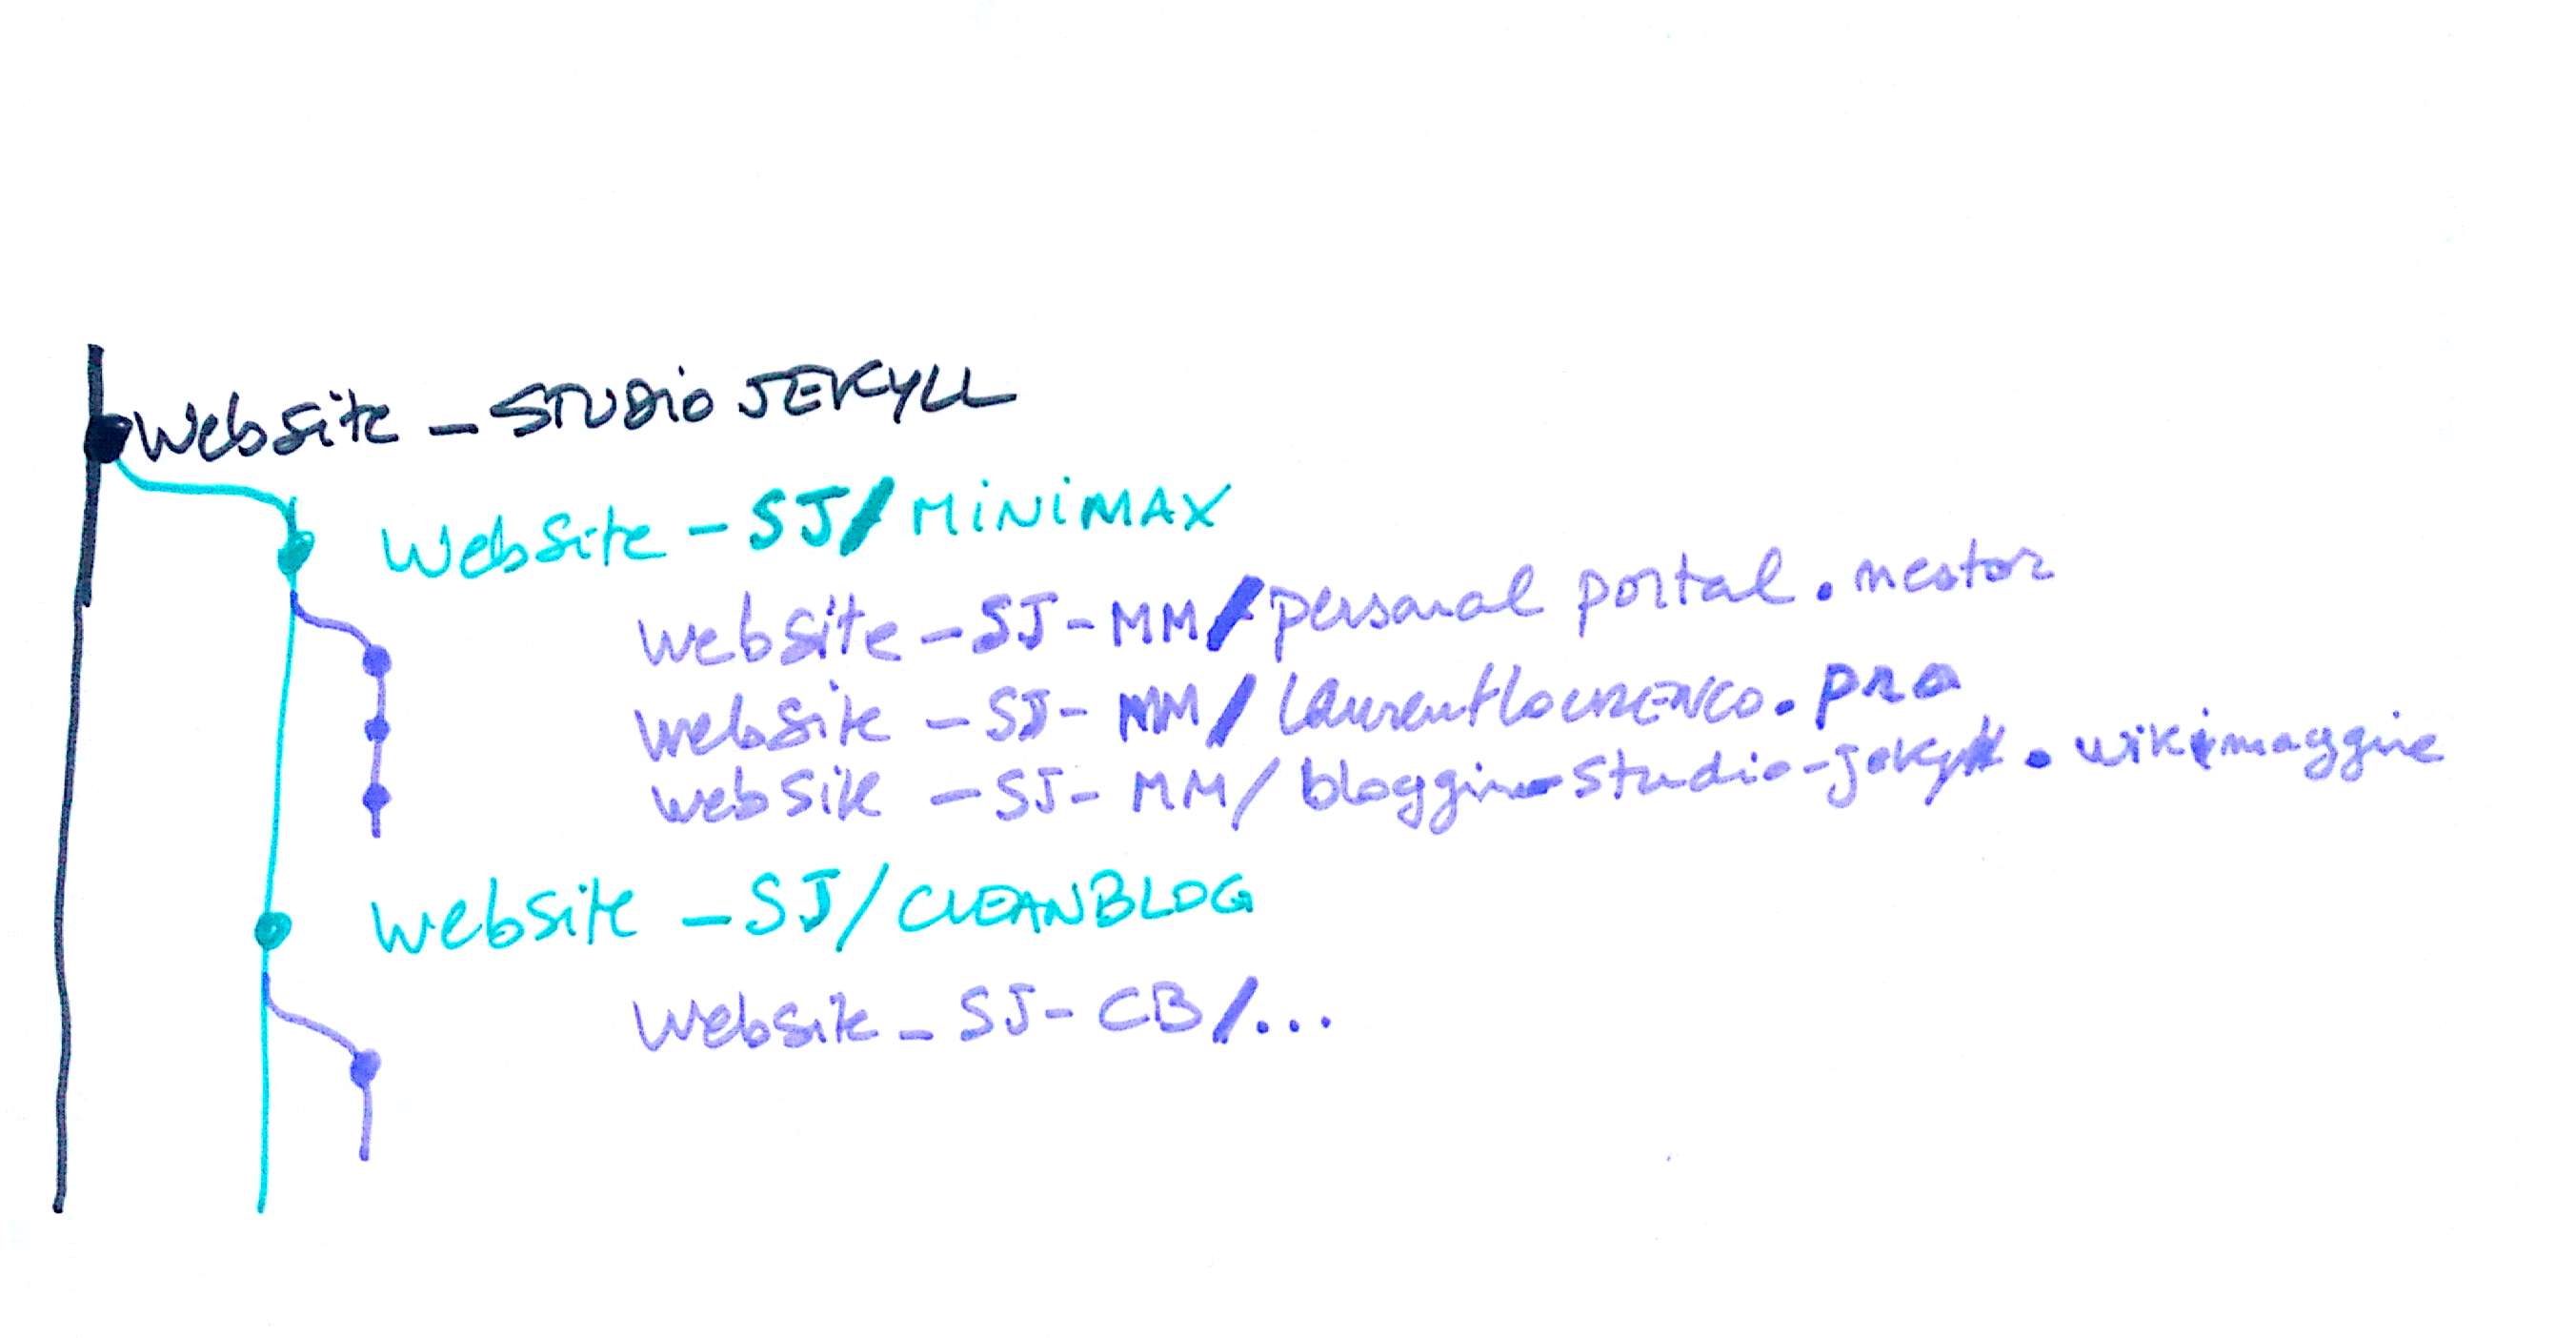 Website - STUDIO JEKYLL
Website - SJ/MINIMAX
website - SJ - MM/personal portal.nestor
website - SJ - MM/laurentlourenco.pro
website - SJ - MM/bloggin-studio-jekyll.wikimaggine
Website - SJ/CLEANBLOG
Website - SJ - CB/...